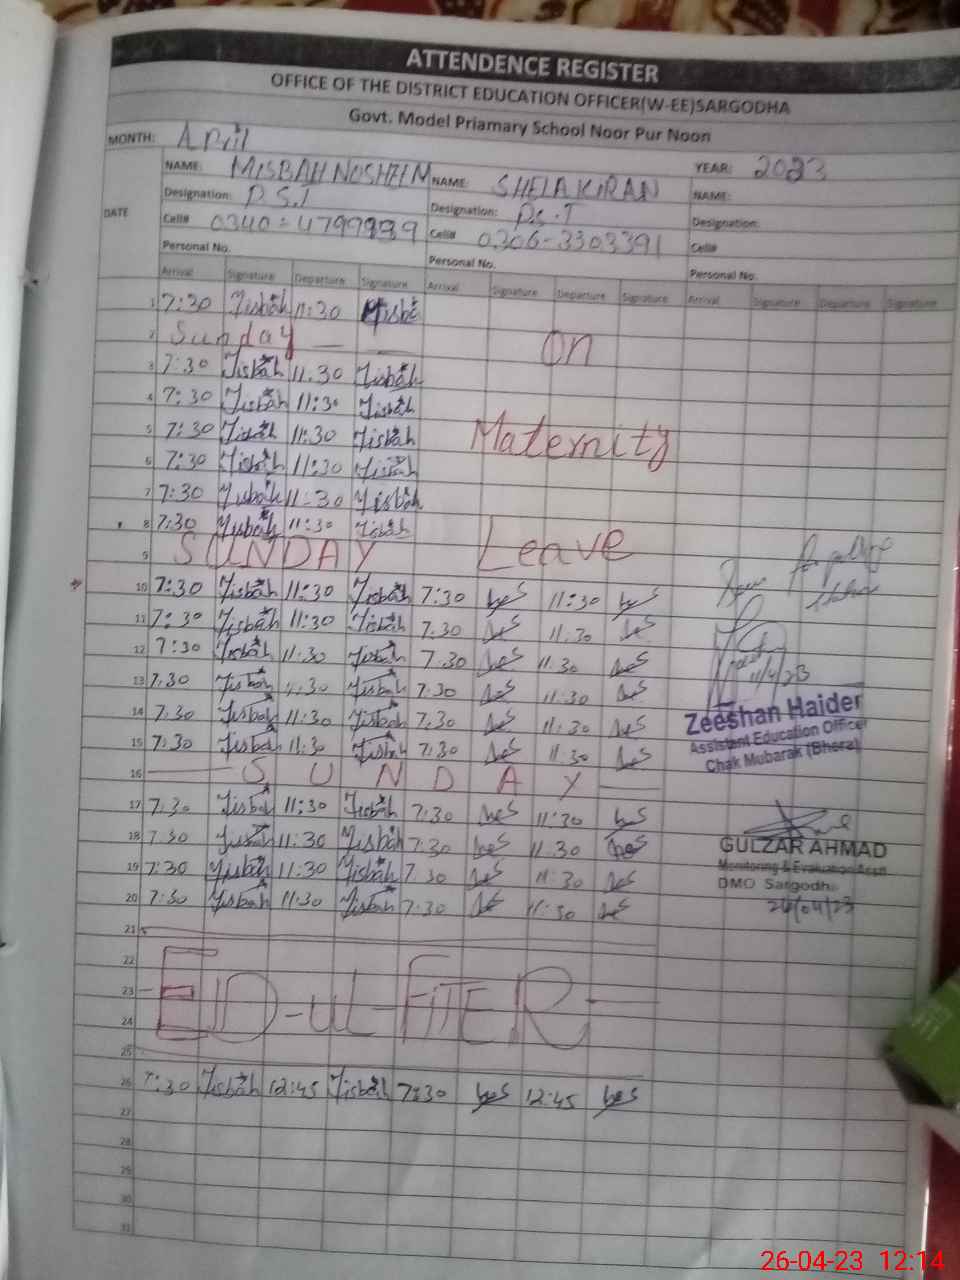 ATTENDENCE REGISTER
OFFICE OF THE DISTRICT EDUCATION OFFICER(W-EE)SARGODHA
Govt. Model Priamary School Noor Pur Noon
MONTH: April YEAR: 2023
NAME: MISBAH NOSHEEM NAME: SHELA KIRAN NAME:
Designation: P.S.T Designation: P.S.T Designation:
DATE Cell# 0340-4799999 Cell# 0306-3303391 Cell#
Personal No. Personal No. Personal No.
Arrival Signature Departure Signature Arrival Signature Departure Signature Arrival Signature Departure Signature
1 7:30 Misbah 11:30 Misba
2 Sunday On
3 7:30 Misbah 11.30 Misbah
4 7:30 Misbah 11:30 Misbah
5 7:30 Misbah 11:30 Misbah Maternity
6 7:30 Misbah 11:30 Misbah
7 7:30 Misbah 11:30 Misbah
8 7:30 Misbah 11:30 Misbah
9 SUNDAY Leave
10 7:30 Misbah 11:30 Misbah 7:30 11:30
11 7:30 Misbah 11:30 Misbah 7.30 11:30
12 7:30 Misbah 11.30 Misbah 7.30 11.30
13 7.30 Misbah 11.30 Misbah 7:30 11:30
11/4/23
14 7:30 Misbah 11:30 Misbah 7:30 11:30
Zeeshan Haider
Assistant Education Officer
Chak Mubarak (Bhera)
15 7:30 Misbah 11:30 Misbah 7:30 11:30
16 SUNDAY
17 7:30 Misbah 11:30 Misbah 7:30 11:30
18 7.30 Misbah 11:30 Misbah 7:30 11.30
GULZAR AHMAD
Monitoring & Evaluation Asstt
DMO Sargodha
26/04/23
19 7:30 Misbah 11:30 Misbah 7.30 11:30
20 7:30 Misbah 11:30 Misbah 7:30 11:30
21
22
23 EID-UL-FITER
24
25
26 7:30 Misbah 12:45 Misbah 7:30 12:45
27
28
29
30
31
26-04-23 12:14